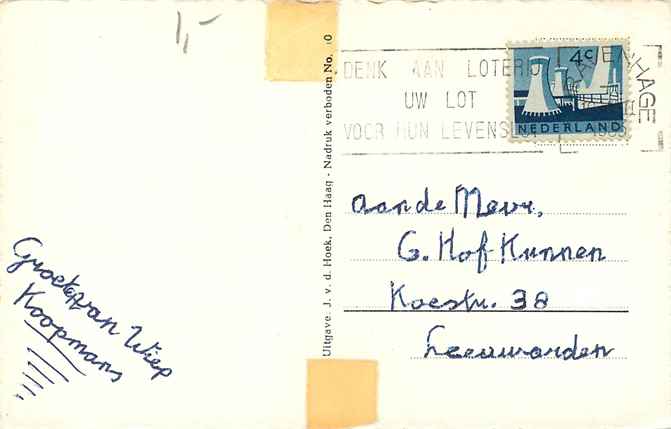 1,-
4c
NEDERLAND
DENK AAN LOTERIJ
UW LOT
VOOR HUN LEVENSLOT
'S-GRAVENHAGE
Uitgave J. v. d. Hoek, Den Haag - Nadruk verboden No. 10
aan de Mevr.
G. Hof Kunnen
Koestr. 38
Leeuwarden
Groeten van Wiep
Koopmans